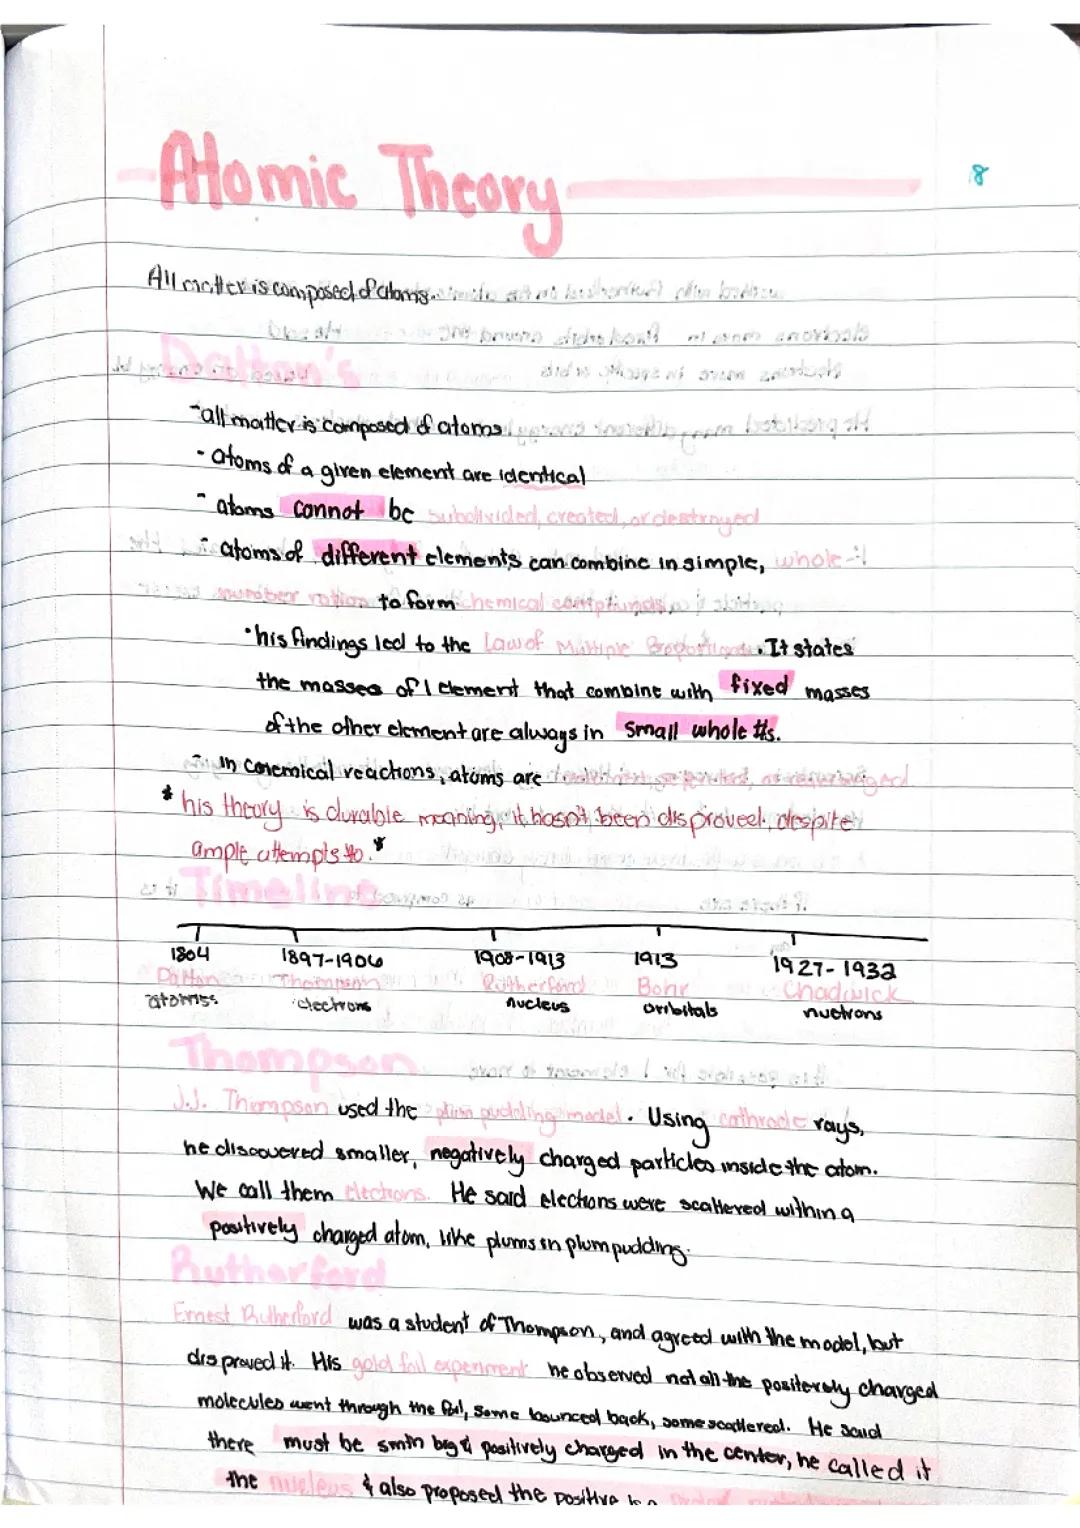 Atomic Theory
8
All matter is composed of atoms.
Dalton's
- all matter is composed of atoms.
- atoms of a given element are identical
- atoms cannot be subdivided, created, or destroyed
- atoms of different elements can combine in simple, whole-
number ratios to form chemical compounds
• his findings led to the Law of Multiple Proportions. It states
the masses of 1 element that combine with fixed masses
of the other element are always in small whole #s.
- in conemical reactions, atoms are combined, separated, or rearranged
* his theory is durable meaning, it hasn't been disproved, despite
ample attempts to. *
Timeline
1804 1897-1906 1908-1913 1913 1927-1932
Dalton Thompson Rutherford Bohr Chadwick
atoms electrons nucleus orribitals nuetrons
Thompson
J.J. Thompson used the plum pudding model. Using cathrode rays,
he discovered smaller, negatively charged particles inside the atom.
We call them electrons. He said elections were scattered within a
positively charged atom, like plums in plum pudding.
Rutherford
Ernest Rutherford was a student of Thompson, and agreed with the model, but
disproved it. His gold foil experiment he observed not all the positevely charged
molecules went through the foil, some bounced back, some scattered. He said
there must be smth big & positively charged in the center, he called it
the nucleus & also proposed the positive is a